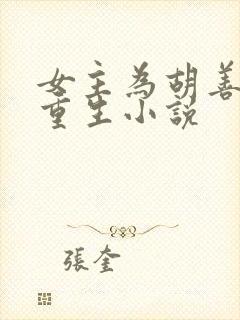 女主為胡善
重生小說
張奎